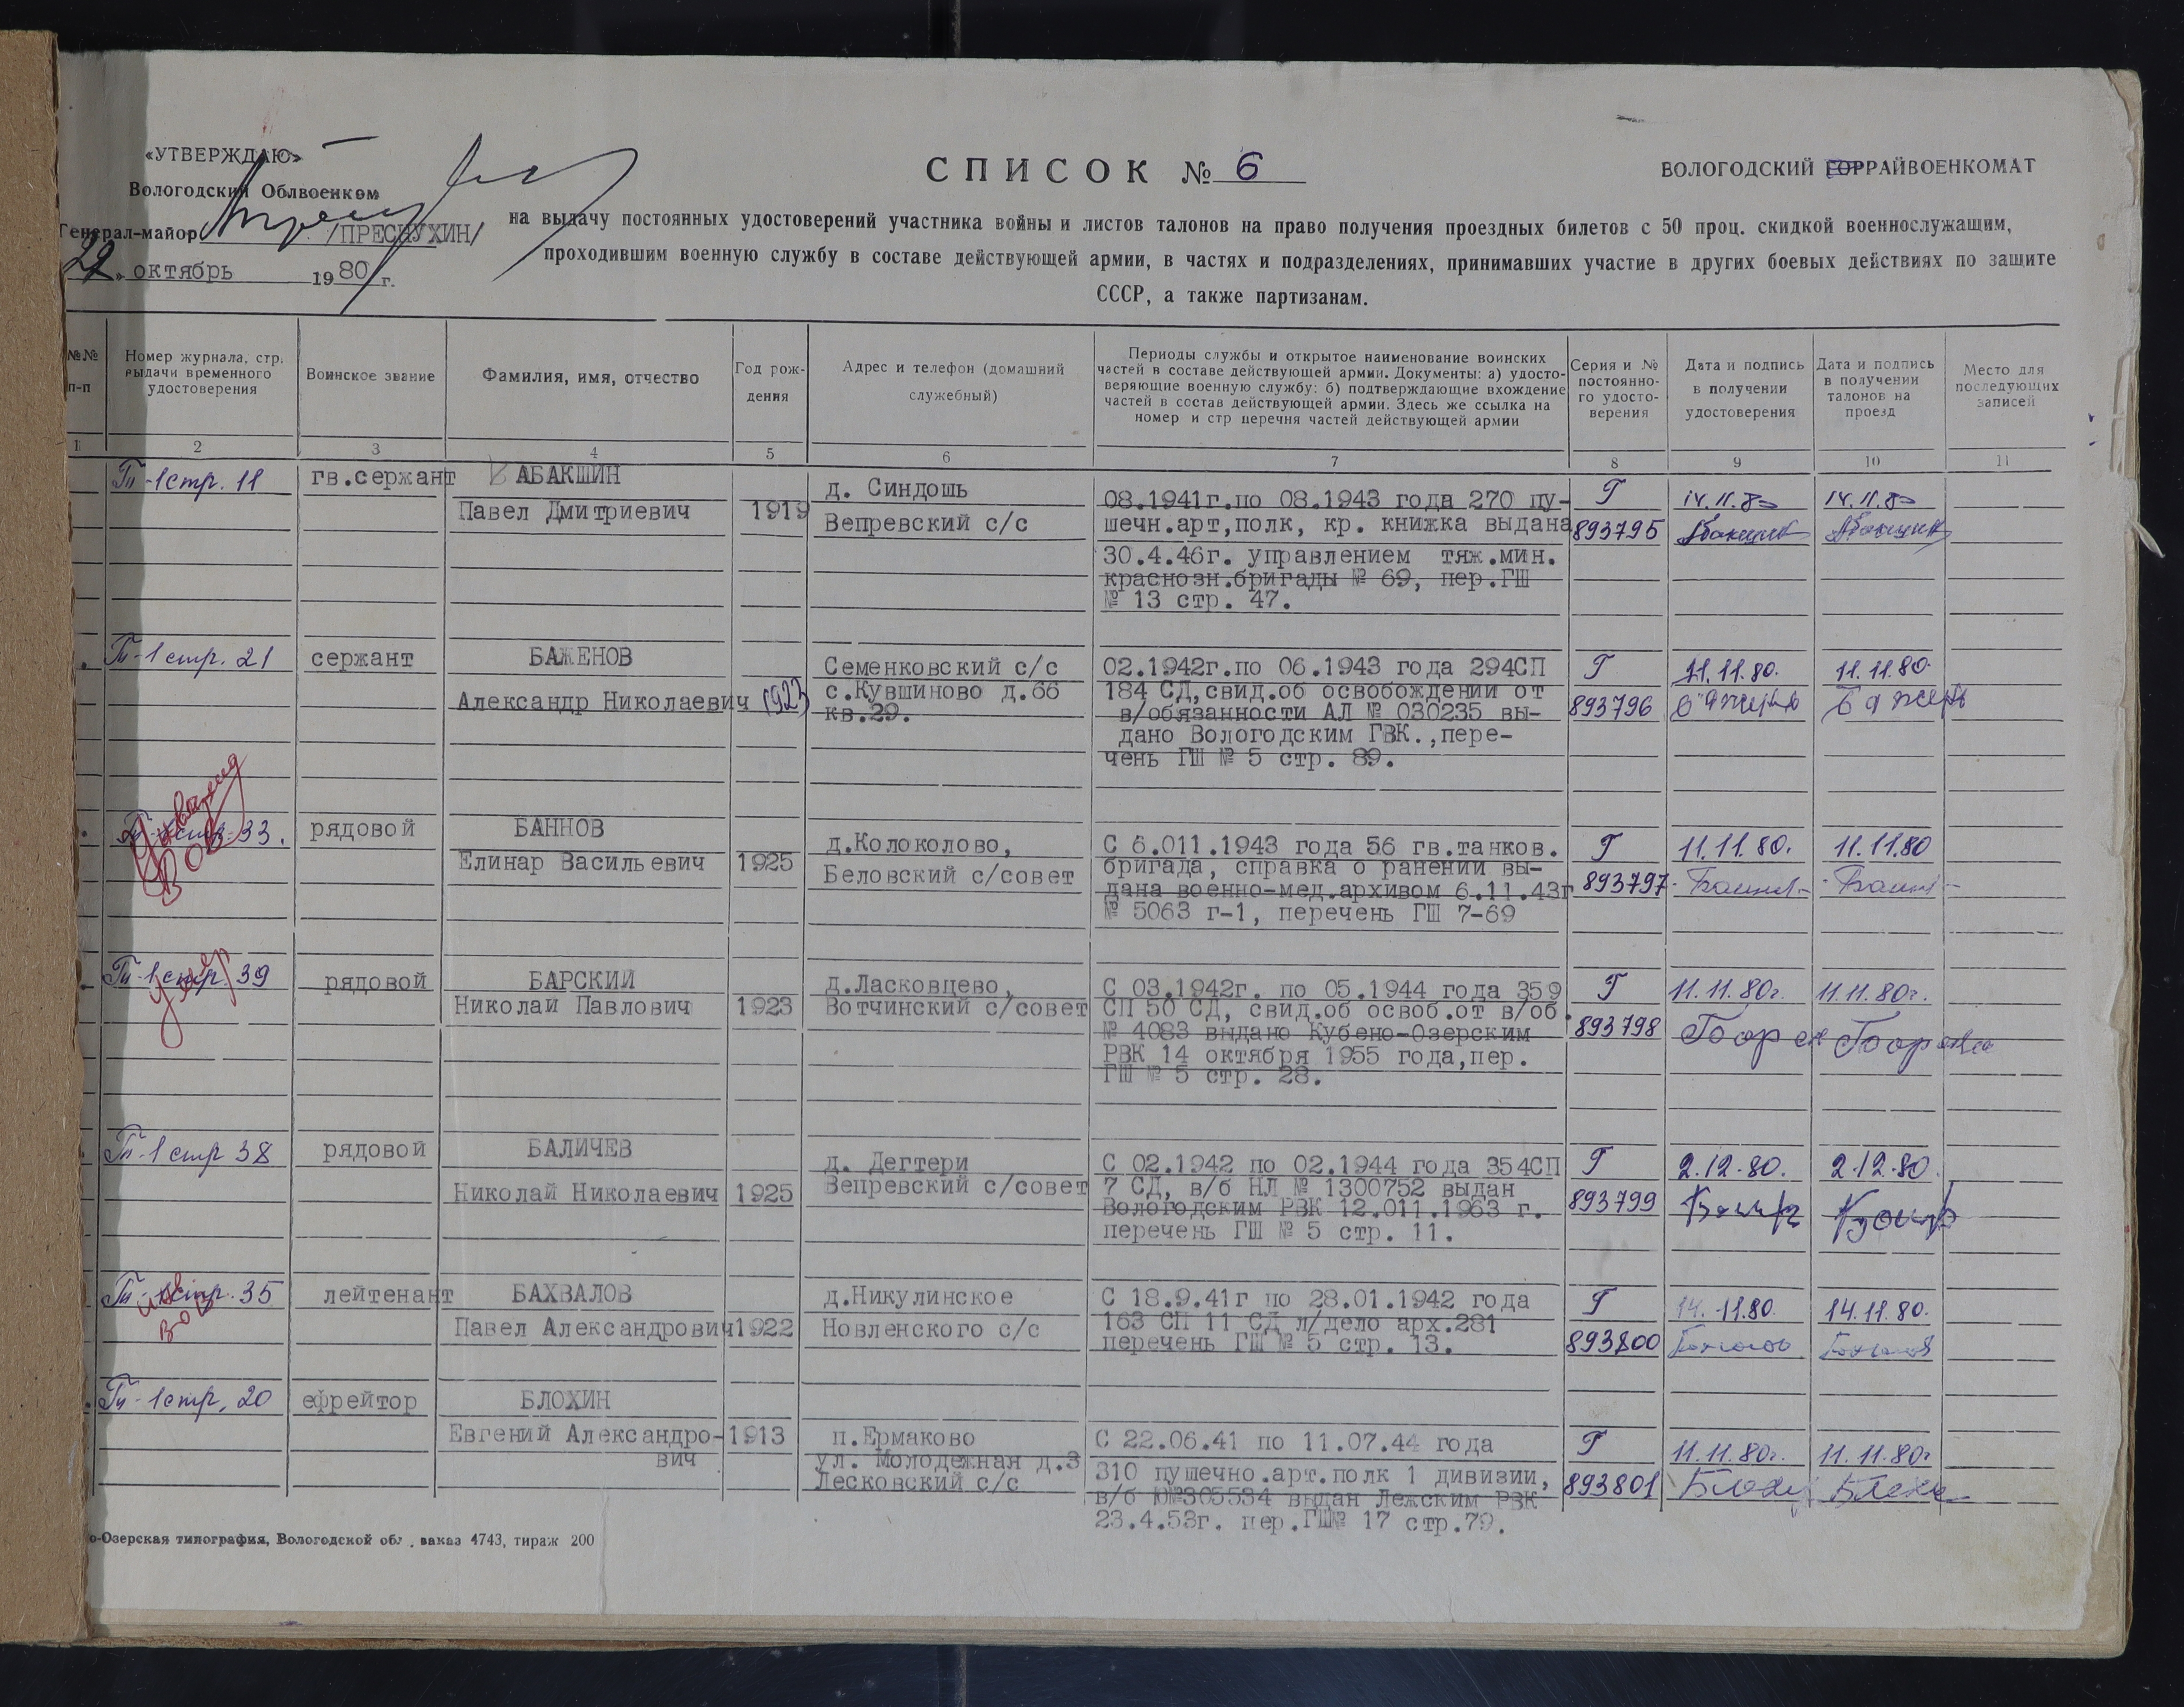 «УТВЕРЖДАЮ»
Вологодский Облвоенком
Генерал-майор /ПРЕСНУХИН/
октябрь 1980 г.
СПИСОК № 6
ВОЛОГОДСКИЙ ГОРРАЙВОЕНКОМАТ
на выдачу постоянных удостоверений участника войны и листов талонов на право получения проездных билетов с 50 проц. скидкой военнослужащим,
проходившим военную службу в составе действующей армии, в частях и подразделениях, принимавших участие в других боевых действиях по защите
СССР, а также партизанам.
№№
п-п
Номер журнала, стр.
выдачи временного
удостоверения
Воинское звание
Фамилия, имя, отчество
Год рож-
дения
Адрес и телефон (домашний
служебный)
Периоды службы и открытое наименование воинских
частей в составе действующей армии. Документы: а) удосто-
веряющие военную службу: б) подтверждающие вхождение
частей в состав действующей армии. Здесь же ссылка на
номер и стр перечня частей действующей армии
Серия и №
постоянно-
го удосто-
верения
Дата и подпись
в получении
удостоверения
Дата и подпись
в получении
талонов на
проезд
Место для
последующих
записей
1 2 3 4 5 6 7 8 9 10 11
Тп-1 стр. 11
гв.сержант
АБАКШИН
Павел Дмитриевич
1919
д. Синдошь
Вепревский с/с
08.1941г.по 08.1943 года 270 пу-
шечн.арт,полк, кр. книжка выдана
30.4.46г. управлением тяж.мин.
краснозн.бригады № 69, пер.ГШ
№ 13 стр. 47.
Г
893795
14.11.80
14.11.80
Тп-1 стр. 21
сержант
БАЖЕНОВ
Александр Николаевич
1923
Семенковский с/с
с.Кувшиново д.66
кв.29.
02.1942г.по 06.1943 года 294СП
184 СД,свид.об освобождении от
в/обязанности АЛ № 030235 вы-
дано Вологодским ГВК.,пере-
чень ГШ № 5 стр. 89.
Г
893796
11.11.80.
11.11.80.
Инвалид
ВОВ
33.
рядовой
БАННОВ
Елинар Васильевич
1925
д.Колоколово,
Беловский с/совет
С 6.011.1943 года 56 гв.танков.
бригада, справка о ранении вы-
дана военно-мед.архивом 6.11.43г
№ 5063 г-1, перечень ГШ 7-69
Г
893797
11.11.80.
11.11.80
Тп-1 стр. 39
умер
рядовой
БАРСКИЙ
Николай Павлович
1923
д.Ласковцево,
Вотчинский с/совет
С 03.1942г. по 05.1944 года 359
СП 50 СД, свид.об освоб.от в/об.
№ 4083 выдано Кубено-Озерским
РВК 14 октября 1955 года,пер.
ГШ № 5 стр. 28.
Г
893798
11.11.80г.
11.11.80г.
Тп-1 стр 38
рядовой
БАЛИЧЕВ
Николай Николаевич
1925
д. Дегтери
Вепревский с/совет
С 02.1942 по 02.1944 года 354СП
7 СД, в/б НЛ № 1300752 выдан
Вологодским РВК 12.011.1963 г.
перечень ГШ № 5 стр. 11.
Г
893799
2.12.80.
2.12.80.
Тп-1 стр. 35
инв
ВОВ
лейтенант
БАХВАЛОВ
Павел Александрович
1922
д.Никулинское
Новленского с/с
С 18.9.41г по 28.01.1942 года
163 СП 11 СД л/дело арх.281
перечень ГШ № 5 стр. 13.
Г
893800
14.11.80.
14.11.80.
Тп-1 стр. 20
ефрейтор
БЛОХИН
Евгений Александро-
вич
1913
п.Ермаково
ул. Молодежная д.3
Лесковский с/с
С 22.06.41 по 11.07.44 года
310 пушечно.арт.полк 1 дивизии,
в/б Ю№305534 выдан Лежским РВК
23.4.53г. пер.ГШ№ 17 стр.79.
Г
893801
11.11.80г.
11.11.80г
о-Озерская типография, Вологодской обл. заказ 4743, тираж 200